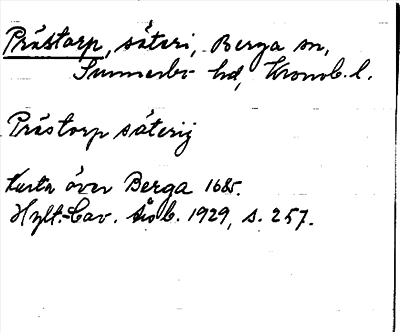 Prästorp, säteri, Berga sn,
Sunnerbo hd, Kronob. l.
Prästorp säterij
Karta över Berga 1685.
Hylt.-Cav. sid. 1929, s. 257.